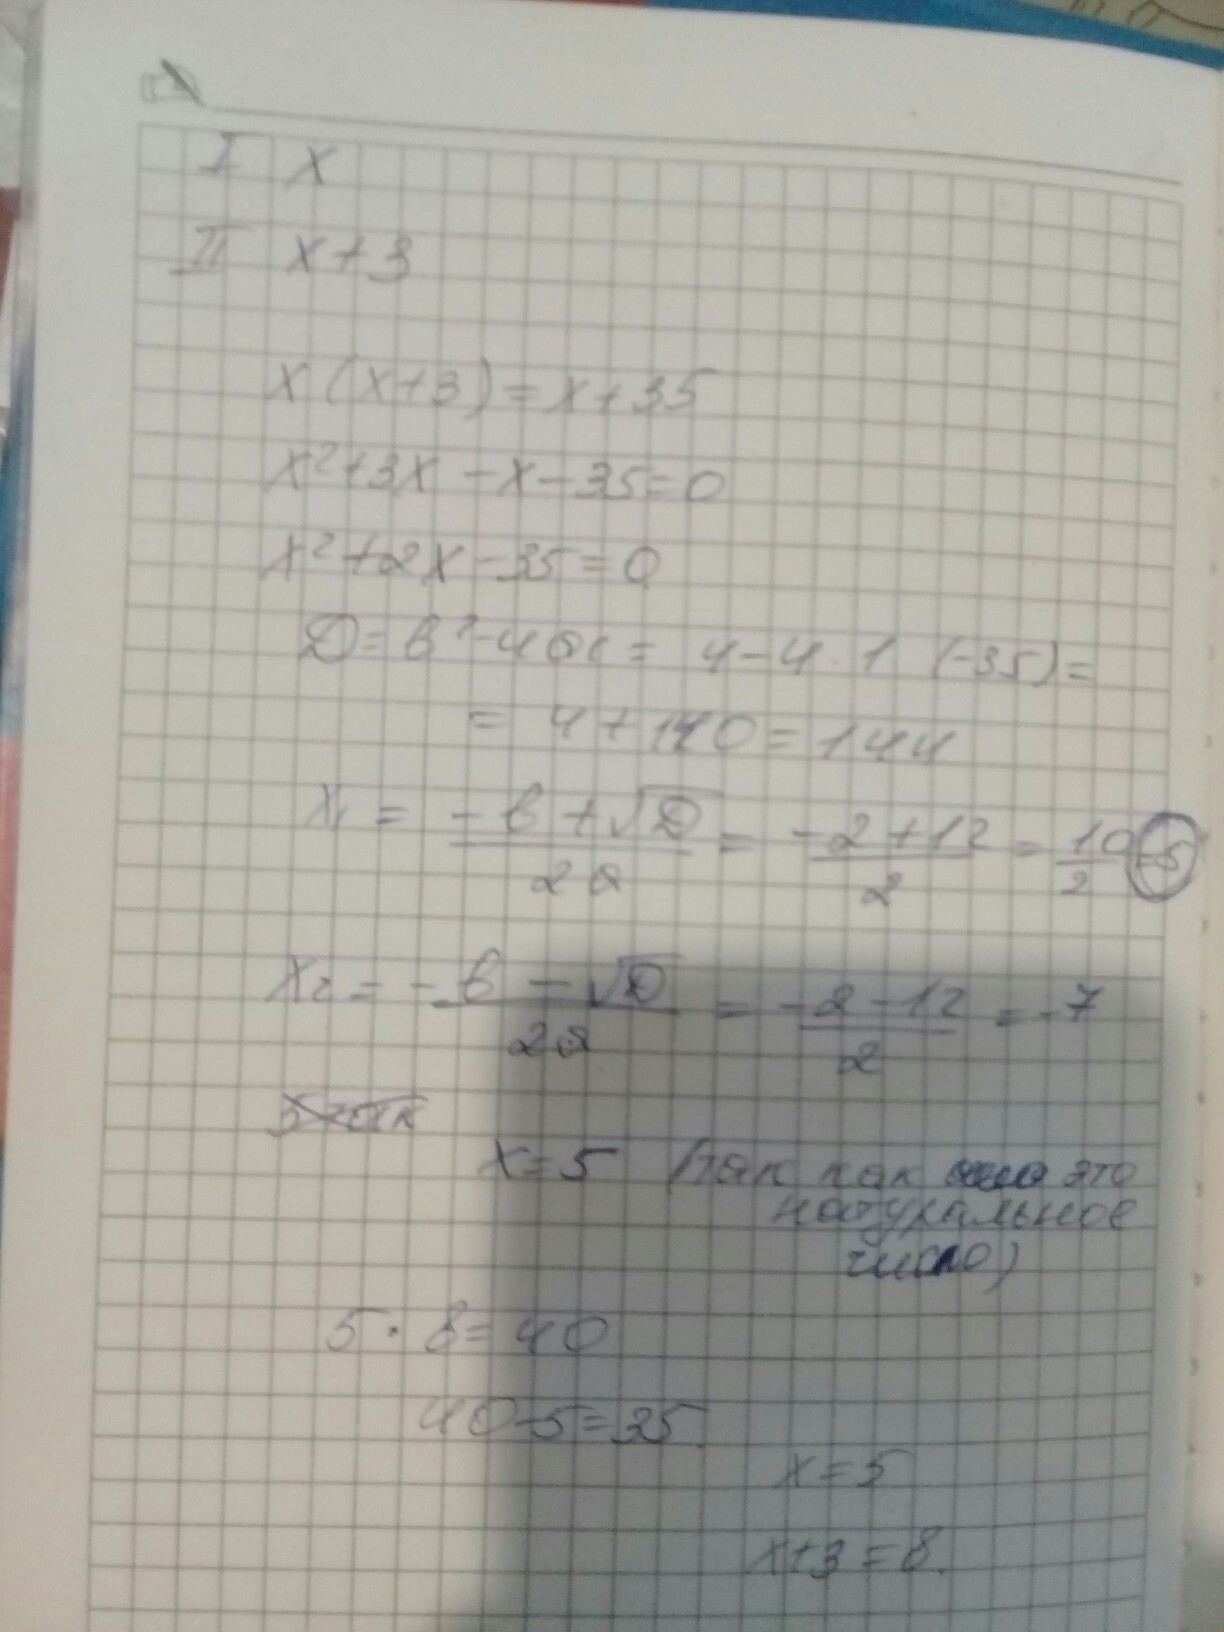 I x
II x+3
x(x+3)=x+35
x²+3x-x-35=0
x²+2x-35=0
D=b²-4ac= 4-4·1 (-35)=
= 4+140=144
x₁ = (-b+√D)/2a = (-2+12)/2 = 10/2 = 5
x₂ = (-b-√D)/2a = (-2-12)/2 = -7
x=5 (так как это
натуральное
число)
5·8=40
40-5=35.
x=5
x+3=8.